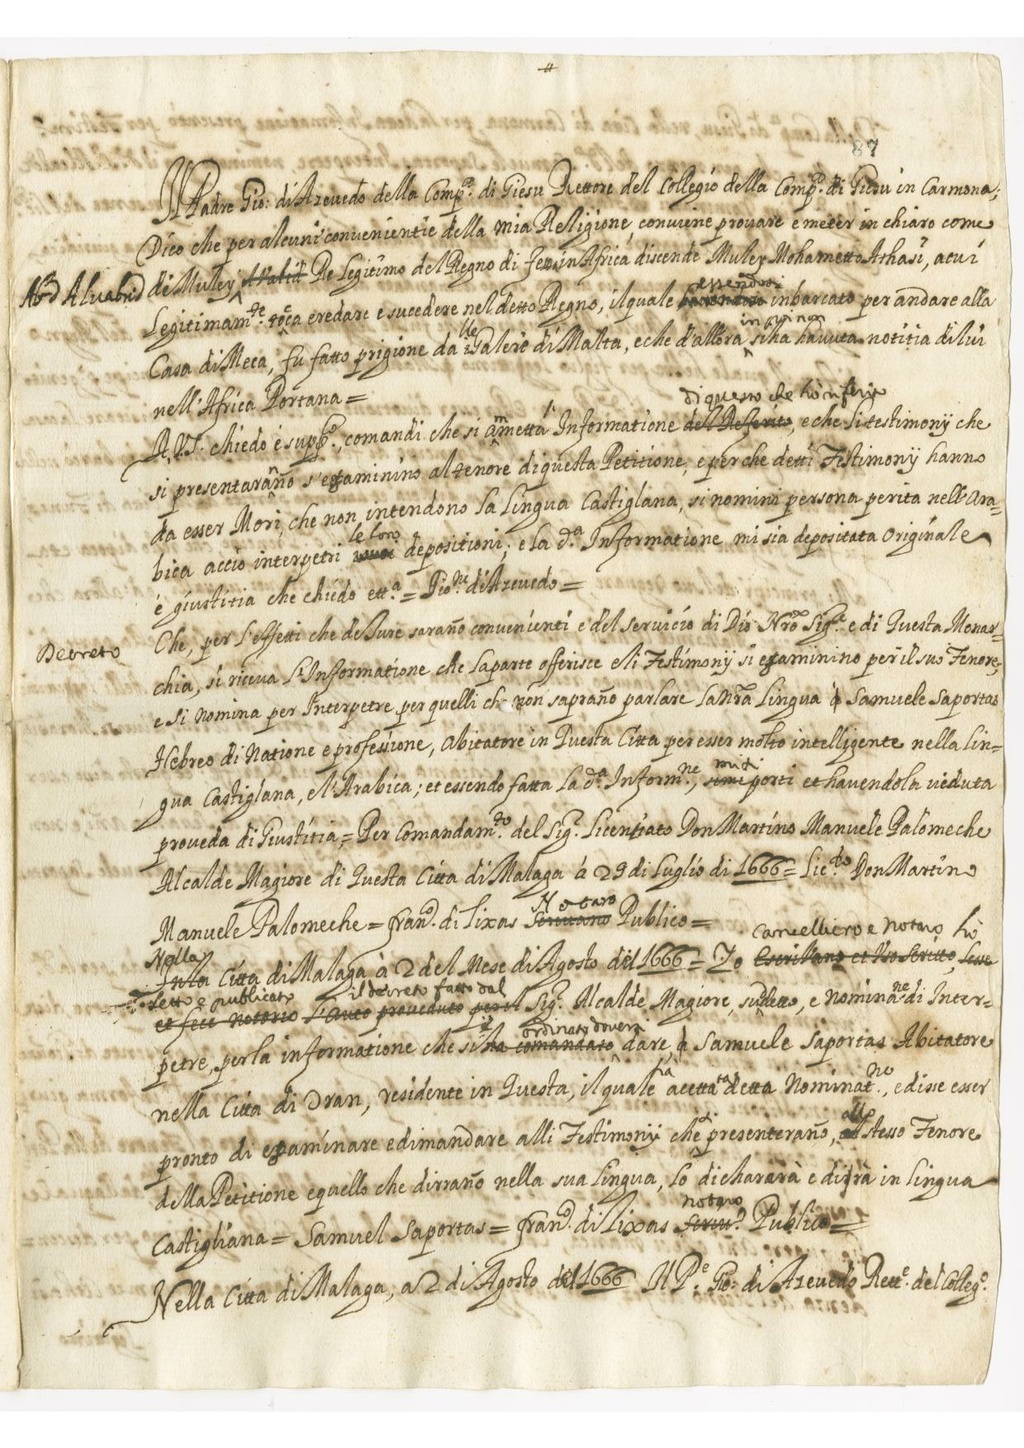 87
Il Padre Gio: di Azevedo della Comp.ª di Giesu Rettore del Collegio della Comp.ª di Giesu in Carmona;
Dico che per alcuni convenientie della mia Religione, conviene provare e meter in chiaro come
Abd Aluahid di Muley Re Legitimo del Regno di fess in Africa discende Muley Mohametto Athasi, a cui
essendosi
Legitimam.te toca eredare e sucedere nel detto Regno, il quale inbarcato per andare alla
in quinon
Casa di Meca, fu fatto prigione da lle Galere di Malta, e che d'allora si ha havuta notitia di lui
nell'Africa Portana=
di questo che hò riferito
A V.S. chiedo e supp.co, comandi che si ametta Informatione del Referito, e che li testimonij che
si presentaranno s'egaminino al tenore di questa Petitione, e perche detti Testimonij hanno
da esser Mori, che non intendono la Lingua Castigliana, si nomini persona perita nell'Ara-
le loro
bica acciò interpetri depositioni, e la d.ª Informatione mi sia depositata Originale
è giustitia che chiedo ett.ª = Gio.ni di Azevedo =
Decreto
Che, per l'effetti che de Jure sarano convenienti e del servicio di Dio Nro Sig.re e di Questa Monar-
chia, si riceva l'Informatione che la parte offerisce e li Testimonij si egaminino per il suo Tenore,
e si nomina per Interpetre per quelli che non saprano parlare la Nra Lingua à Samuele Saportas
Hebreo di Natione e professione, abitatore in Questa Citta per esser molto intelligente nella Lin-
gua Castigliana, e l'Arabica; et essendo fatta la d.ª Inform.ne, mi si porti et havendola veduta
proveda di Giustitia = Per Comandam.to del Sig.r Licentiato Don Martino Manuele Palomeche
Alcalde Magiore di Questa Citta di Malaga à 29 di Luglio di 1666 = Lic.to Don Martino
Notaro
Manuele Palomeche = Fran.co di Lixas Scrivano Publico =
Nella
Cancelliero e notaro hò
Citta di Malaga à 2 del Mese di Agosto del 1666 = Io Escrivano et Iso Scritto, Lesse
letto e publicato il decreto fatto dal
et fece Notorio l'Auto proveduto per il Sig.r Alcalde Magiore, sudetto, e nominat.ne di Inter-
ordinato doversi
petre, per la informatione che si ha comandato dare, à Samuele Saportas Abitatore
nella Citta di Oran, residente in Questa, il quale hà acettata detta Nominat.ne, e disse esser
pronto di egaminare e dimandare alli Testimonij che presenterano, stesso Tenore
della Petitione e quello che dirrano nella sua Lingua, lo dichararà e dirà in Lingua
notaro
Castigliana = Samuel Saportas = Fran.co di Lixas Publico =
Nella Citta di Malaga, a 2 di Agosto del 1666 Il P.e Gio: di Azevedo Rett.e del Colleg.o